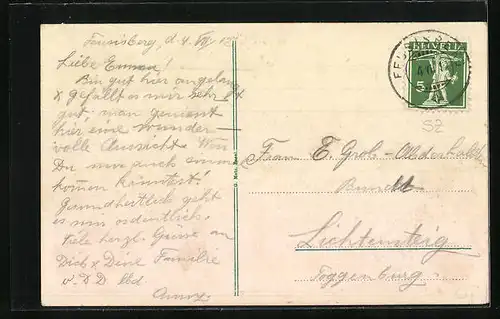 Feusisberg, d. 4. VII
Liebe Emma!
Bin gut hier angelangt
& gefällt es mir sehr
gut, man geniesst
hier eine wunder-
volle Aussicht. Wenn
Du nur auch einmal
kommen könntest!
Gesundheitlich geht
es mir ordentlich.
Viele herzl. Grüsse an
Dich & Deine Familie
v. D. D. lbd.
HELVETIA
5
SZ
Frau E. Grob-
Lichtensteig
Toggenburg.